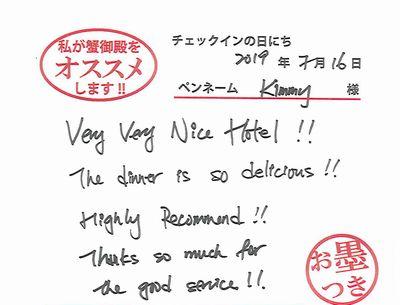 私が蟹御殿を
オススメ
します!!
チェックインの日にち
2019 年 7月 16 日
ペンネーム Kimmy 様
Very Very Nice Hotel !!
The dinner is so delicious !!
Highly Recommend !!
Thanks so much for
the good service !!
お墨
つき